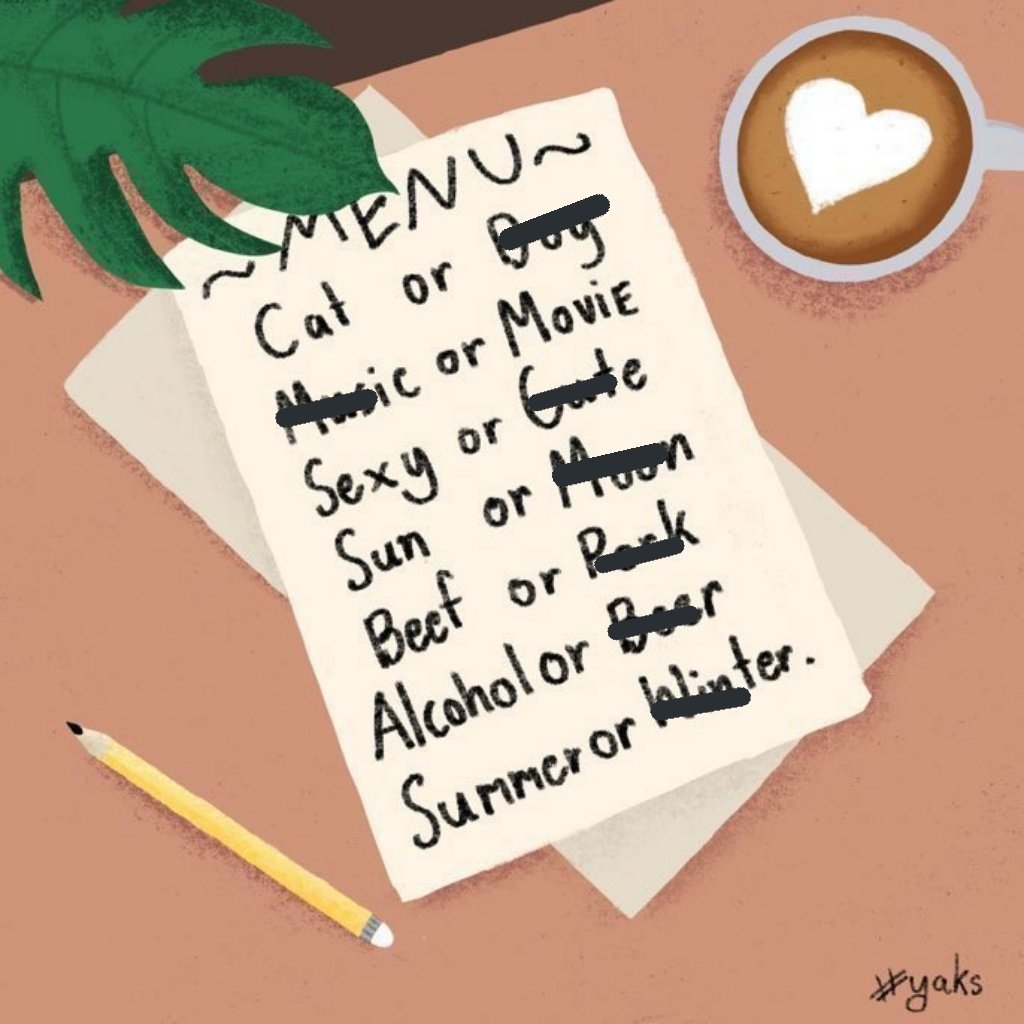 ~MENU~
Cat or Dog
Music or Movie
Sexy or Cute
Sun or Moon
Beef or Pork
Alcohol or Beer
Summer or Winter.
#yaks